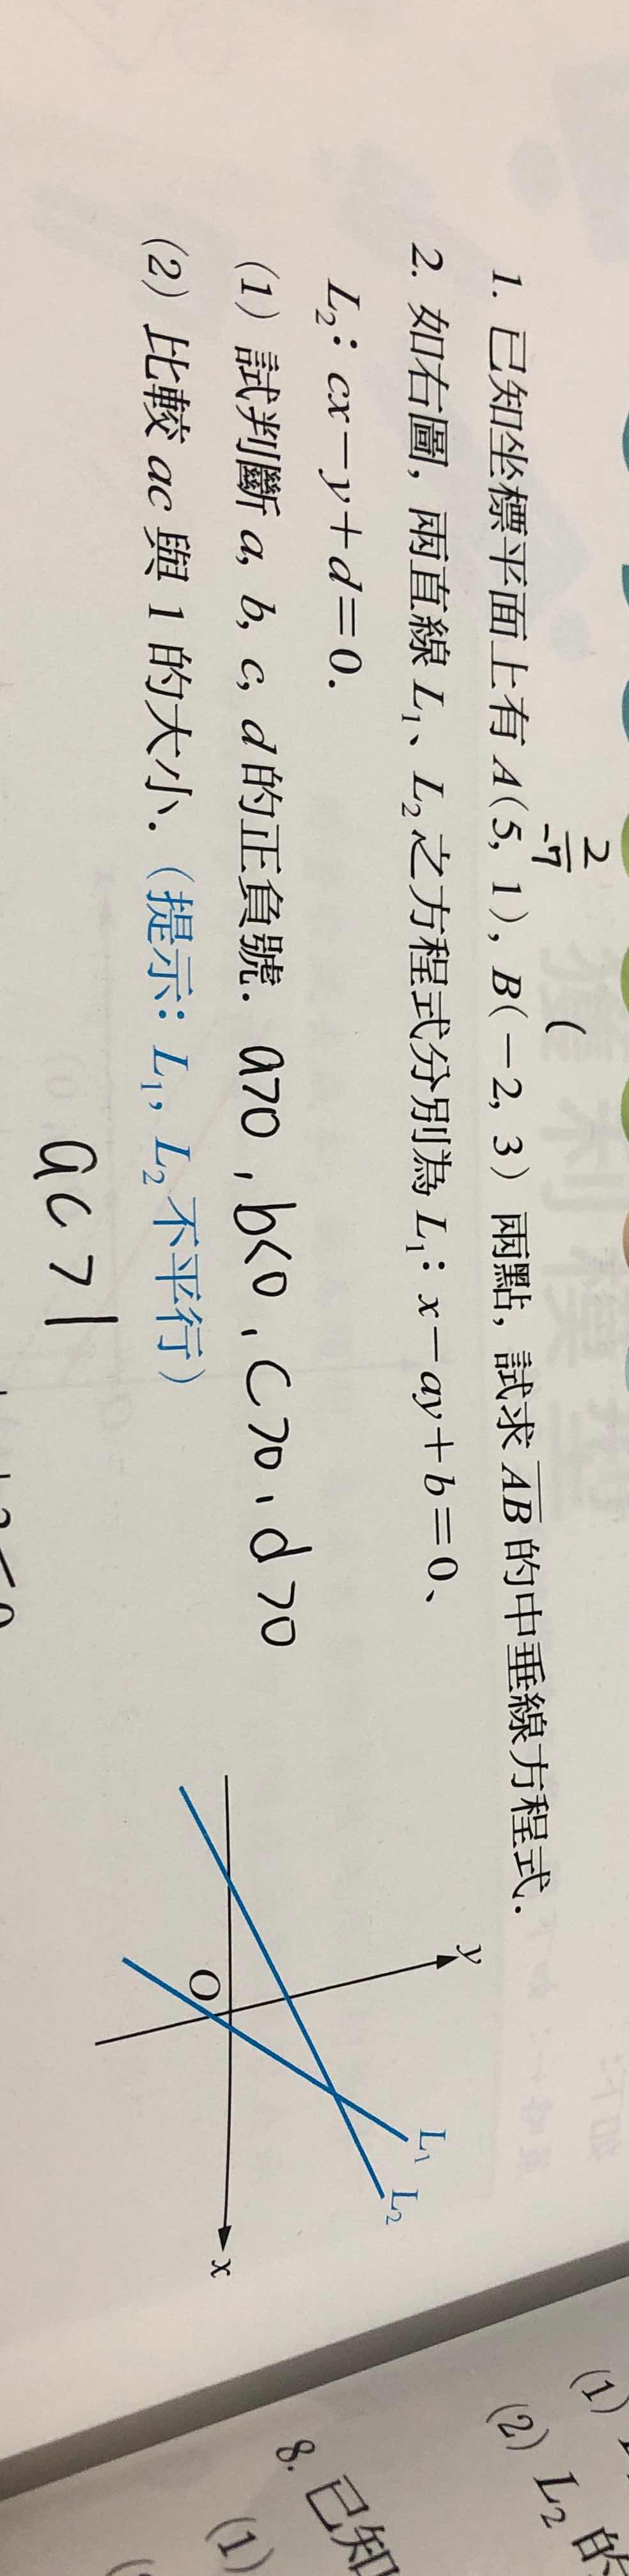 2
-7
(
1. 已知坐標平面上有 A(5, 1), B(−2, 3) 兩點, 試求 AB 的中垂線方程式.
2. 如右圖, 兩直線 L₁、L₂ 之方程式分別為 L₁: x−ay+b=0、
L₂: cx−y+d=0.
(1) 試判斷 a, b, c, d 的正負號. a>0, b<0, c>0, d>0
(2) 比較 ac 與 1 的大小. (提示: L₁, L₂ 不平行)
ac>1
y
L₁
L₂
O
x
(1)
(2) L₂ 的
8. 已知
(1)